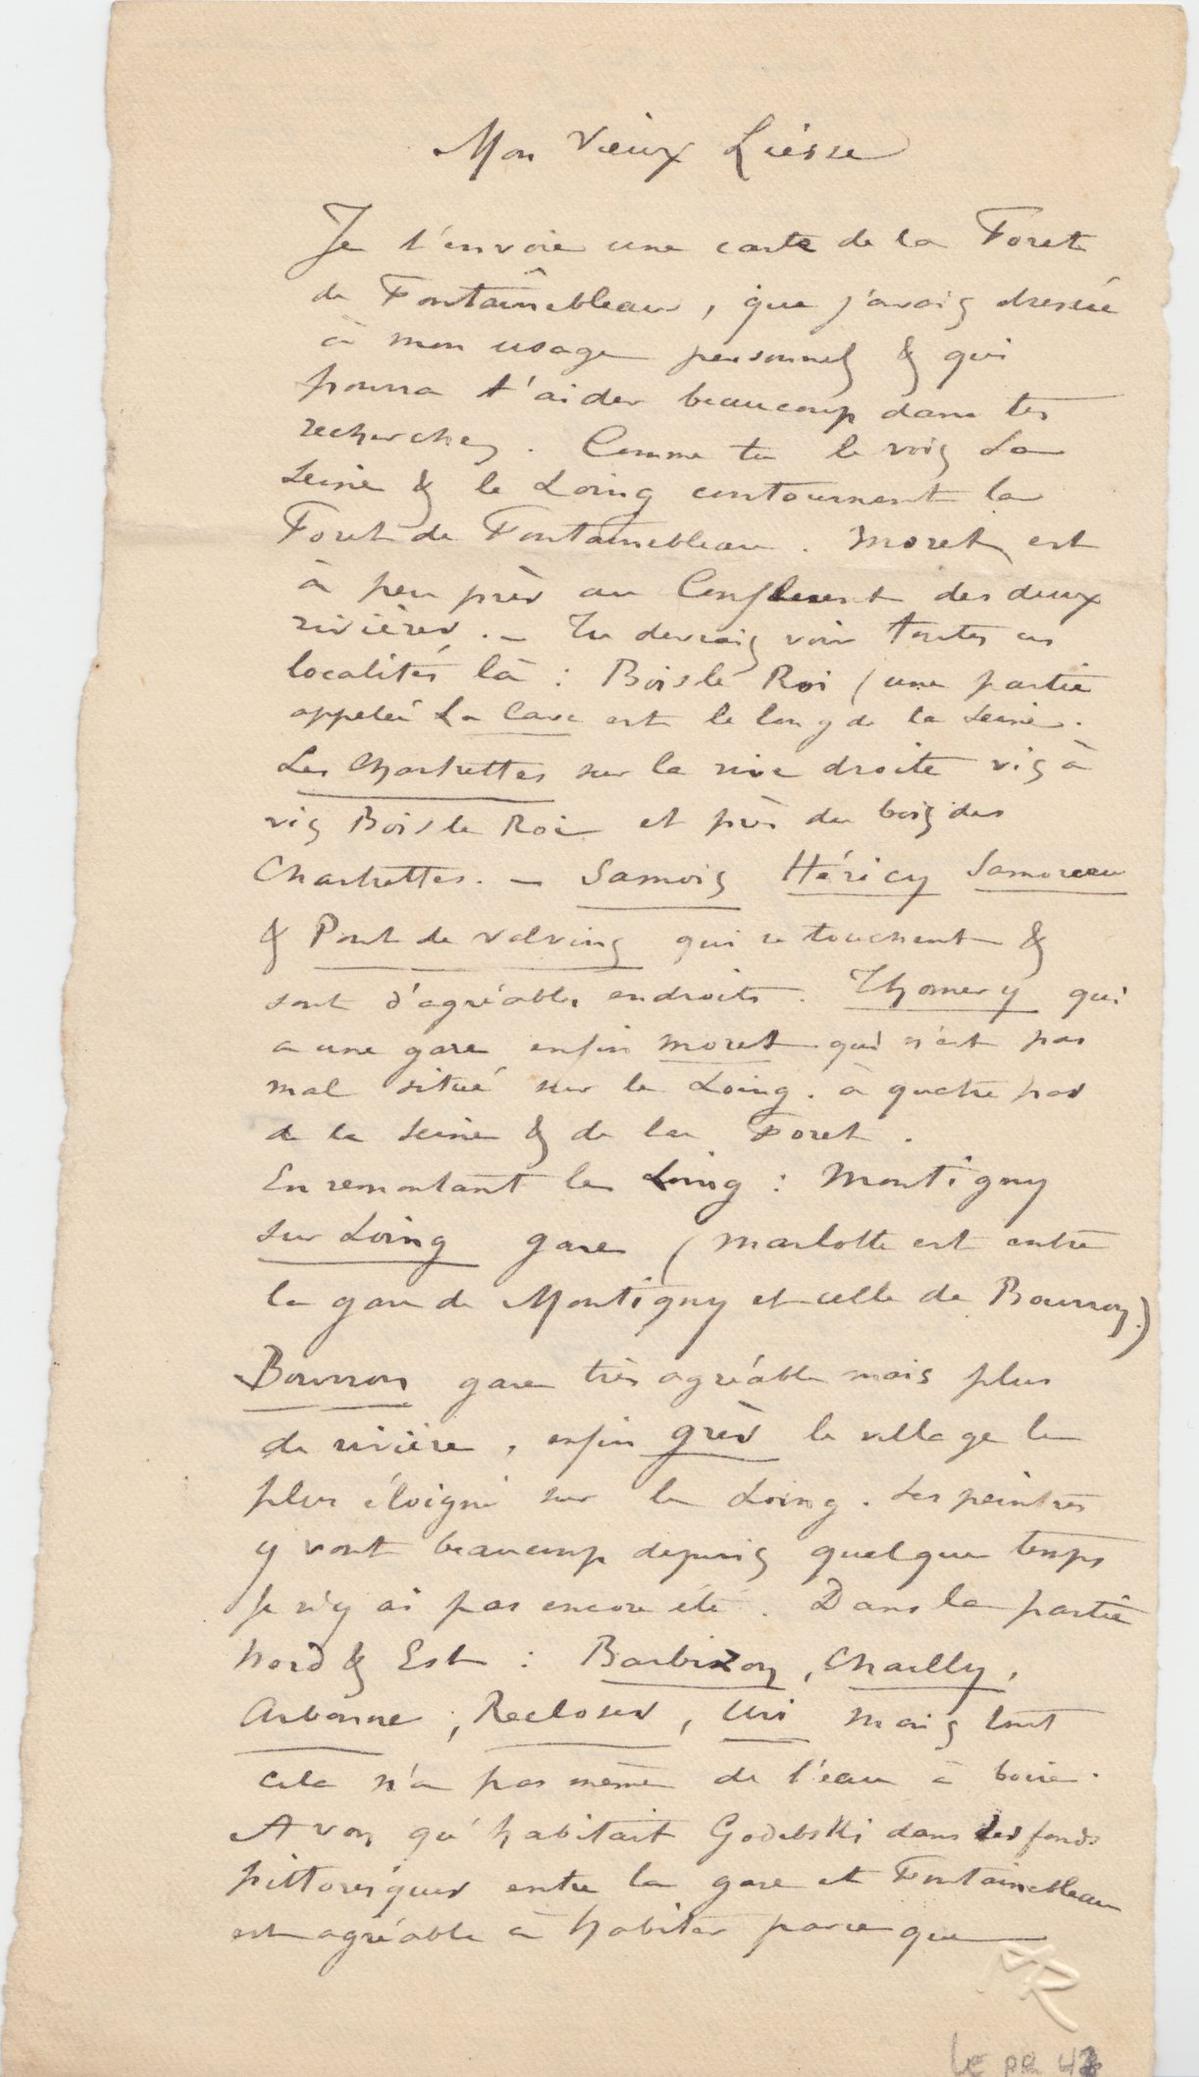 Mon Vieux Liesse
Je t'envoie une carte de la Foret
de Fontaînebleau, que j'avais dressée
à mon usage personnel & qui
pourra t'aider beaucoup dans tes
recherches. Comme tu le vois La
Seine & le Loing contournent la
Foret de Fontainebleau. Moret est
à peu près au Confluent des deux
rivières. — Tu devrais voir toutes ces
localités là : Bois le Roi (une partie
appelée La Cave est le long de la Seine.
Les Chartrettes sur la rive droite vis à
vis Bois le Roi et près du bois des
Chartrettes. — Samois Héricy Samoreau
& Pont de Valvins qui se touchent &
sont d'agréables endroits. Thomery qui
a une gare enfin Moret qui n'est pas
mal situé sur le Loing. à quatre pas
de la Seine & de la Foret.
En remontant le Loing : Montigny
sur Loing gare (Marlotte est entre
la gare de Montigny et celle de Bourron)
Bourron gare très agréable mais plus
de rivière, enfin Grès le village le
plus éloigné sur le Loing. Les peintres
y vont beaucoup depuis quelque temps
Je n'y ai pas encore été. Dans la partie
Nord & Est : Barbizon, Chailly,
Arbonne, Recloses, Uri mais tout
cela n'a pas même de l'eau à boire.
Avon qu'habitait Godebski dans les fonds
pittoresques entre la gare et Fontainebleau
est agréable à habiter parce que
AR
LE RR 42